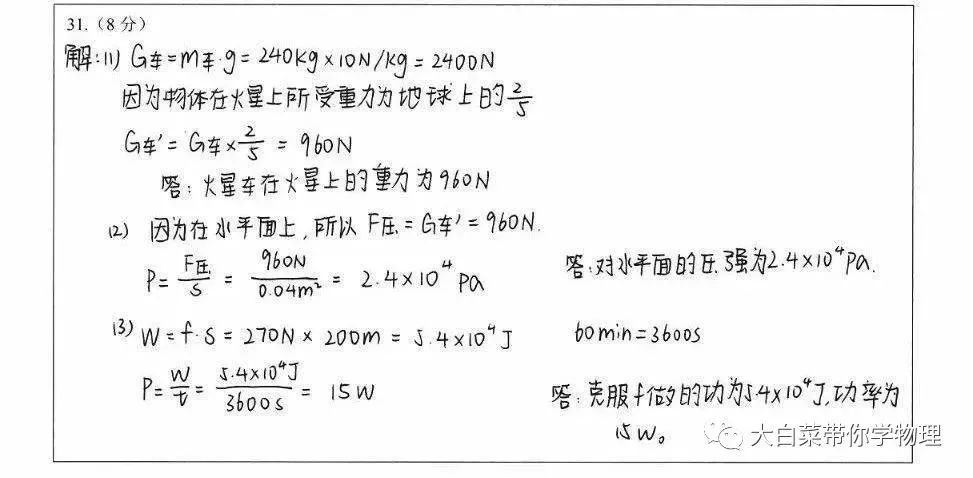 31.（8 分）
解:(1) G车=m车·g=240kg×10N/kg=2400N
因为物体在火星上所受重力为地球上的2/5
G车′=G车×2/5=960N
答:火星车在火星上的重力为960N
(2) 因为在水平面上,所以F压=G车′=960N.
P=F压/S=960N/0.04m²=2.4×10⁴Pa
答:对水平面的压强为2.4×10⁴Pa.
(3) W=f·S=270N×200m=5.4×10⁴J
60min=3600s
P=W/t=5.4×10⁴J/3600s=15W
答:克服f做的功为5.4×10⁴J,功率为
15W。
大白菜带你学物理